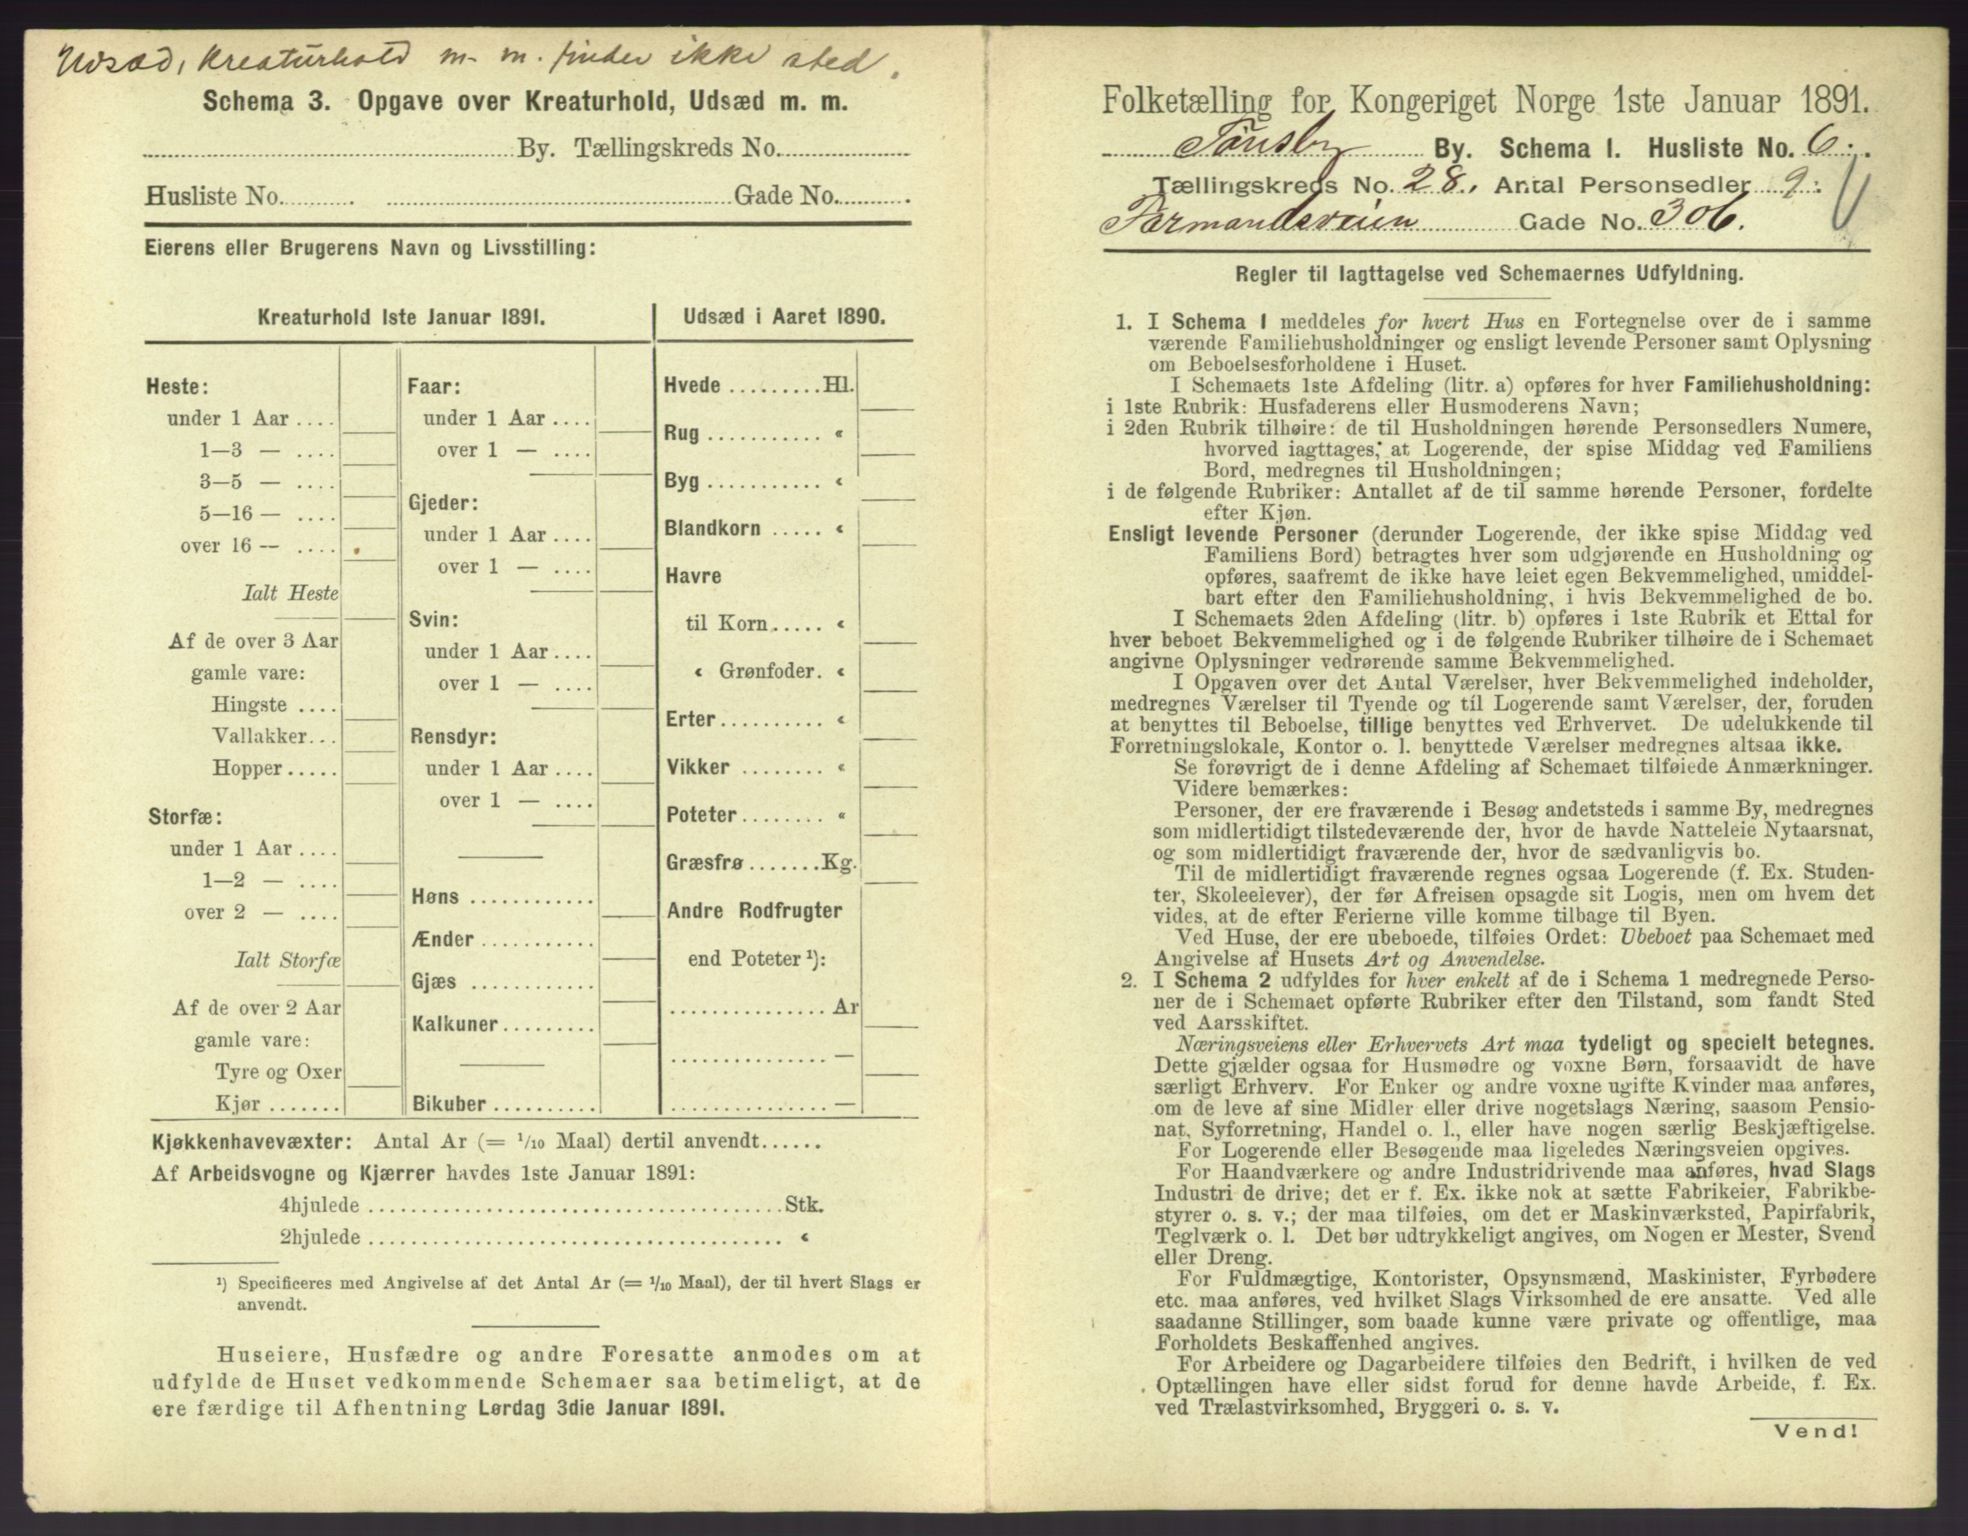 Udsæd, Kreaturhold m. m. finder ikke sted.
Schema 3. Opgave over Kreaturhold, Udsæd m. m.
By. Tællingskreds No.
Husliste No. Gade No.
Eierens eller Brugerens Navn og Livsstilling:
Kreaturhold 1ste Januar 1891.
Heste:
under 1 Aar ....
1—3 — ....
3—5 — ....
5—16 — ....
over 16 — ....
Ialt Heste
Af de over 3 Aar
gamle vare:
Hingste ....
Vallakker...
Hopper.....
Storfæ:
under 1 Aar ....
1—2 — ....
over 2 — ....
Ialt Storfæ
Af de over 2 Aar
gamle vare:
Tyre og Oxer
Kjør .......
Faar:
under 1 Aar ....
over 1 — ....
Gjeder:
under 1 Aar ....
over 1 — ....
Svin:
under 1 Aar ....
over 1 — ....
Rensdyr:
under 1 Aar ....
over 1 — ....
Høns ............
Ænder...........
Gjæs ............
Kalkuner.........
Bikuber ..........
Udsæd i Aaret 1890.
Hvede .........Hl.
Rug ........... «
Byg ........... «
Blandkorn ..... «
Havre
til Korn..... «
« Grønfoder. «
Erter.......... «
Vikker ........ «
Poteter........ «
Græsfrø.......Kg.
Andre Rodfrugter
end Poteter ¹):
............... Ar
............... —
............... —
Kjøkkenhavevæxter: Antal Ar (= 1/10 Maal) dertil anvendt......
Af Arbeidsvogne og Kjærrer havdes 1ste Januar 1891:
4hjulede ..................................... Stk.
2hjulede ..................................... «
¹) Specificeres med Angivelse af det Antal Ar (= 1/10 Maal), der til hvert Slags er
anvendt.
Huseiere, Husfædre og andre Foresatte anmodes om at
udfylde de Huset vedkommende Schemaer saa betimeligt, at de
ere færdige til Afhentning Lørdag 3die Januar 1891.
Folketælling for Kongeriget Norge 1ste Januar 1891.
Tönsby By. Schema I. Husliste No. 6.
Tællingskreds No. 28. Antal Personsedler 9.
Farmandsveien Gade No. 306.
Regler til Iagttagelse ved Schemaernes Udfyldning.
1. I Schema 1 meddeles for hvert Hus en Fortegnelse over de i samme
værende Familiehusholdninger og ensligt levende Personer samt Oplysning
om Beboelsesforholdene i Huset.
I Schemaets 1ste Afdeling (litr. a) opføres for hver Familiehusholdning:
i 1ste Rubrik: Husfaderens eller Husmoderens Navn;
i 2den Rubrik tilhøire: de til Husholdningen hørende Personsedlers Numere,
hvorved iagttages, at Logerende, der spise Middag ved Familiens
Bord, medregnes til Husholdningen;
i de følgende Rubriker: Antallet af de til samme hørende Personer, fordelte
efter Kjøn.
Ensligt levende Personer (derunder Logerende, der ikke spise Middag ved
Familiens Bord) betragtes hver som udgjørende en Husholdning og
opføres, saafremt de ikke have leiet egen Bekvemmelighed, umiddel-
bart efter den Familiehusholdning, i hvis Bekvemmelighed de bo.
I Schemaets 2den Afdeling (litr. b) opføres i 1ste Rubrik et Ettal for
hver beboet Bekvemmelighed og i de følgende Rubriker tilhøire de i Schemaet
angivne Oplysninger vedrørende samme Bekvemmelighed.
I Opgaven over det Antal Værelser, hver Bekvemmelighed indeholder,
medregnes Værelser til Tyende og til Logerende samt Værelser, der, foruden
at benyttes til Beboelse, tillige benyttes ved Erhvervet. De udelukkende til
Forretningslokale, Kontor o. l. benyttede Værelser medregnes altsaa ikke.
Se forøvrigt de i denne Afdeling af Schemaet tilføiede Anmærkninger.
Videre bemærkes:
Personer, der ere fraværende i Besøg andetsteds i samme By, medregnes
som midlertidigt tilstedeværende der, hvor de havde Natteleie Nytaarsnat,
og som midlertidigt fraværende der, hvor de sædvanligvis bo.
Til de midlertidigt fraværende regnes ogsaa Logerende (f. Ex. Studen-
ter, Skoleelever), der før Afreisen opsagde sit Logis, men om hvem det
vides, at de efter Ferierne ville komme tilbage til Byen.
Ved Huse, der ere ubeboede, tilføies Ordet: Ubeboet paa Schemaet med
Angivelse af Husets Art og Anvendelse.
2. I Schema 2 udfyldes for hver enkelt af de i Schema 1 medregnede Perso-
ner de i Schemaet opførte Rubriker efter den Tilstand, som fandt Sted
ved Aarsskiftet.
Næringsveiens eller Erhvervets Art maa tydeligt og specielt betegnes.
Dette gjælder ogsaa for Husmødre og voxne Børn, forsaavidt de have
særligt Erhverv. For Enker og andre voxne ugifte Kvinder maa anføres,
om de leve af sine Midler eller drive nogetslags Næring, saasom Pensio-
nat, Syforretning, Handel o. l., eller have nogen særlig Beskjæftigelse.
For Logerende eller Besøgende maa ligeledes Næringsveien opgives.
For Haandværkere og andre Industridrivende maa anføres, hvad Slags
Industri de drive; det er f. Ex. ikke nok at sætte Fabrikeier, Fabrikbe-
styrer o. s. v.; der maa tilføies, om det er Maskinværksted, Papirfabrik,
Teglværk o. l. Det bør udtrykkeligt angives, om Nogen er Mester, Svend
eller Dreng.
For Fuldmægtige, Kontorister, Opsynsmænd, Maskinister, Fyrbødere
etc. maa anføres, ved hvilket Slags Virksomhed de ere ansatte. Ved alle
saadanne Stillinger, som baade kunne være private og offentlige, maa
Forholdets Beskaffenhed angives.
For Arbeidere og Dagarbeidere tilføies den Bedrift, i hvilken de ved
Optællingen have eller sidst forud for denne havde Arbeide, f. Ex.
ved Trælastvirksomhed, Bryggeri o. s. v.
Vend!